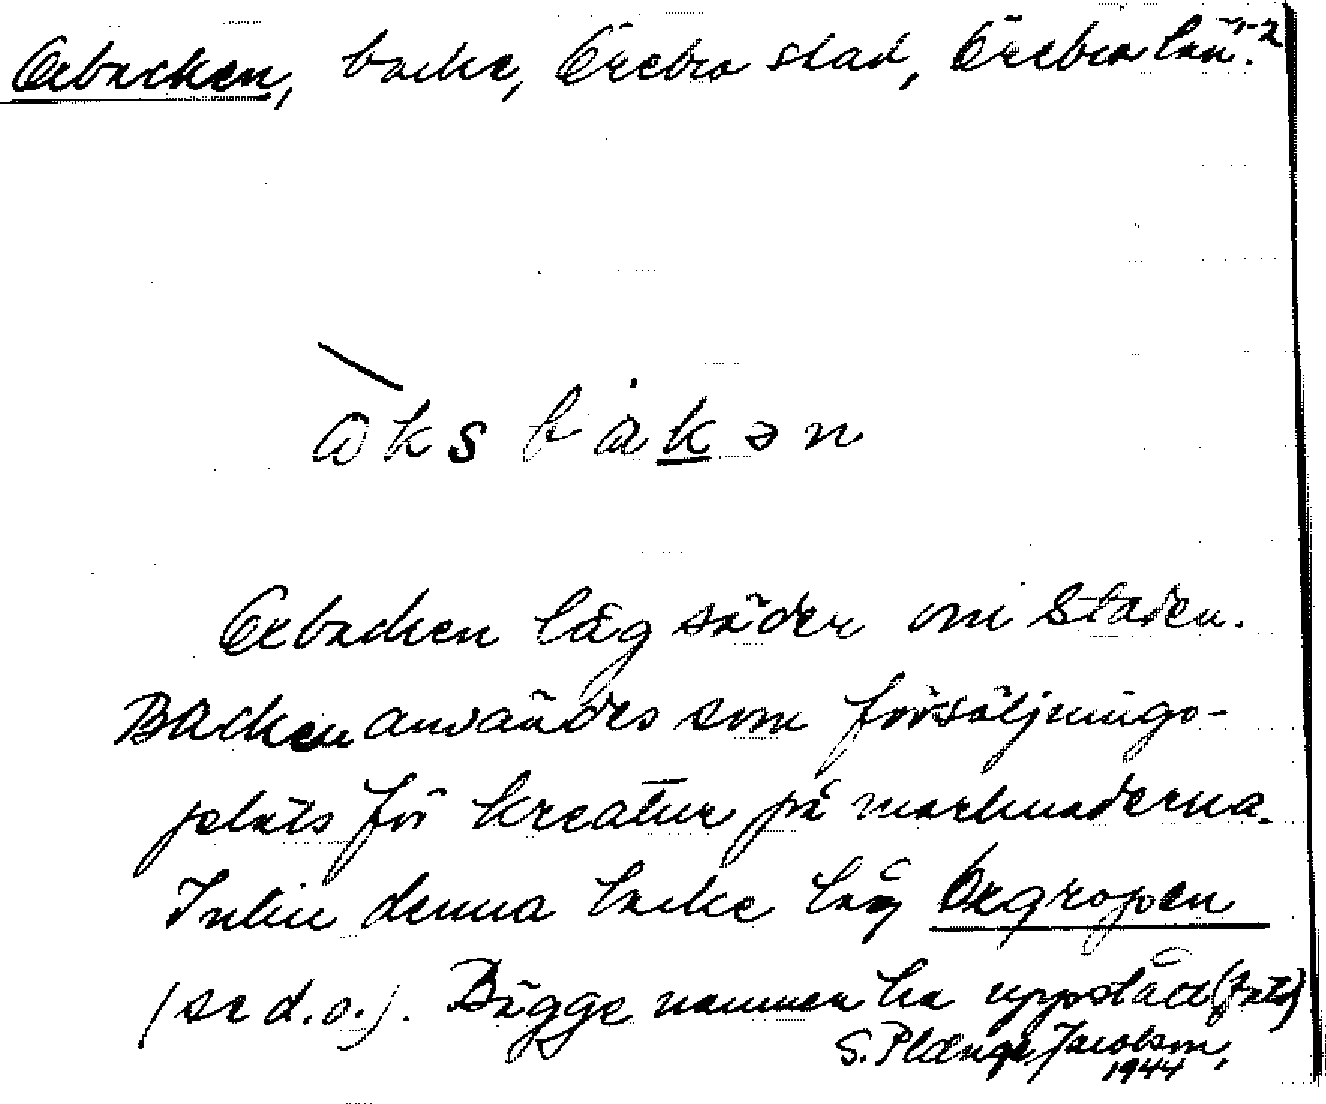 Oxbacken, backe, Örebro stad, Örebro län. 1-2
ɷksbakən
Oxbacken låg söder om staden.
Backen användes som försäljnings-
plats för kreatur på marknaderna.
Intill denna backe låg Oxgropen
(se d.o.). Bägge namnen ha uppstått
S. Plænge Jacobson,
1944